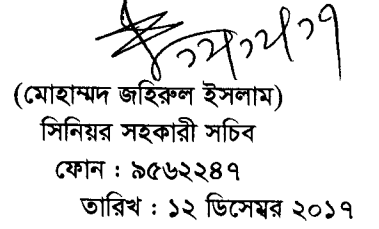 (মোহাম্মদ জহিরুল ইসলাম)
সিনিয়র সহকারী সচিব
ফোন : ৯৫৬২২৪৭
তারিখ : ১২ ডিসেম্বর ২০১৭